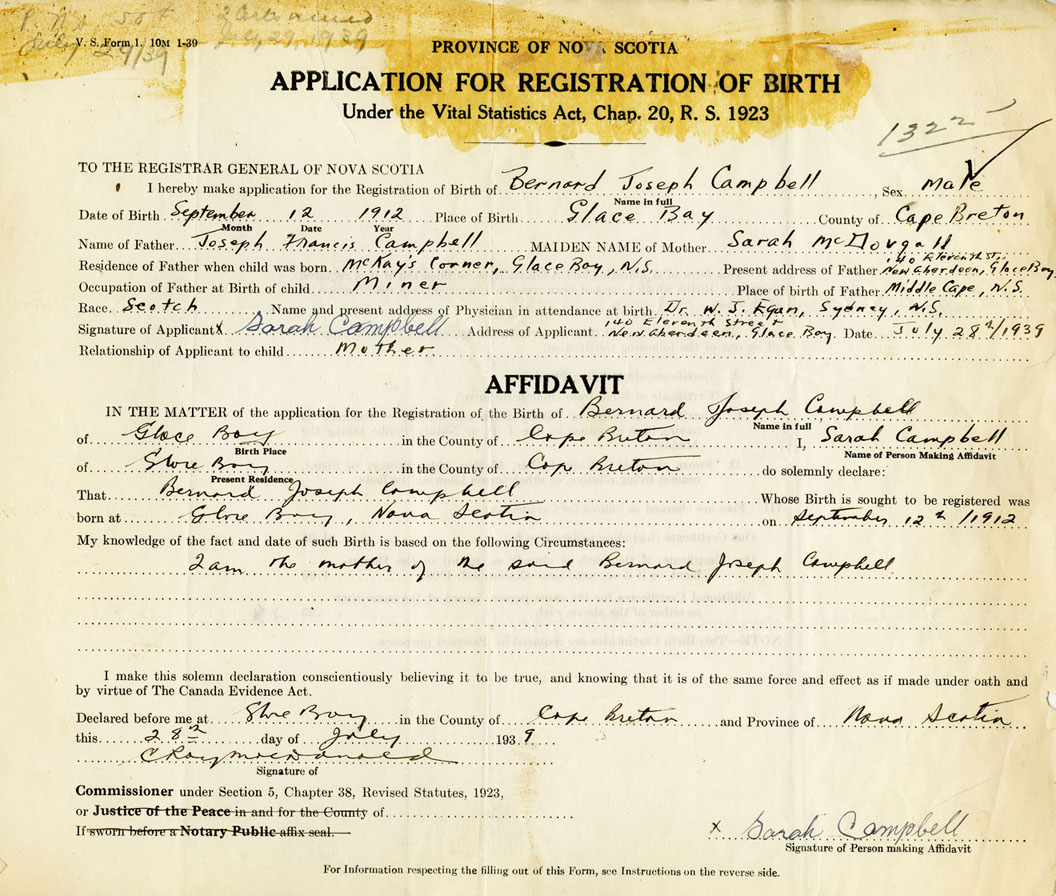 P. N. 50¢ 
July 29/39 July 29, 1939
V. S. Form 1. 10M 1-39
PROVINCE OF NOVA SCOTIA
APPLICATION FOR REGISTRATION OF BIRTH
Under the Vital Statistics Act, Chap. 20, R. S. 1923
1322
TO THE REGISTRAR GENERAL OF NOVA SCOTIA
I hereby make application for the Registration of Birth of Bernard Joseph Campbell, Sex Male
Name in full
Date of Birth September 12 1912 Place of Birth Glace Bay County of Cape Breton
Month Date Year
Name of Father Joseph Francis Campbell MAIDEN NAME of Mother Sarah McDougall
140 Eleventh St.,
Residence of Father when child was born McKay's Corner, Glace Bay, N.S. Present address of Father New Aberdeen, Glace Bay
Occupation of Father at Birth of child Miner Place of birth of Father Middle Cape, N.S.
Race Scotch Name and present address of Physician in attendance at birth Dr. W. J. Egan, Sydney, N.S.
140 Eleventh Street
Signature of Applicant X Sarah Campbell Address of Applicant New Aberdeen, Glace Bay. Date July 28th/1939
Relationship of Applicant to child Mother
AFFIDAVIT
IN THE MATTER of the application for the Registration of the Birth of Bernard Joseph Campbell
Name in full
of Glace Bay in the County of Cape Breton I, Sarah Campbell
Birth Place Name of Person Making Affidavit
of Glace Bay in the County of Cape Breton do solemnly declare:
Present Residence
That Bernard Joseph Campbell Whose Birth is sought to be registered was
born at Glace Bay, Nova Scotia on September 12th/1912
My knowledge of the fact and date of such Birth is based on the following Circumstances:
I am the mother of the said Bernard Joseph Campbell
I make this solemn declaration conscientiously believing it to be true, and knowing that it is of the same force and effect as if made under oath and
by virtue of The Canada Evidence Act.
Declared before me at Glace Bay in the County of Cape Breton and Province of Nova Scotia
this 28th day of July 1939
C Ray McDonald
Signature of
Commissioner under Section 5, Chapter 38, Revised Statutes, 1923,
or Justice of the Peace in and for the County of
If sworn before a Notary Public affix seal.
X Sarah Campbell
Signature of Person making Affidavit
For Information respecting the filling out of this Form, see Instructions on the reverse side.